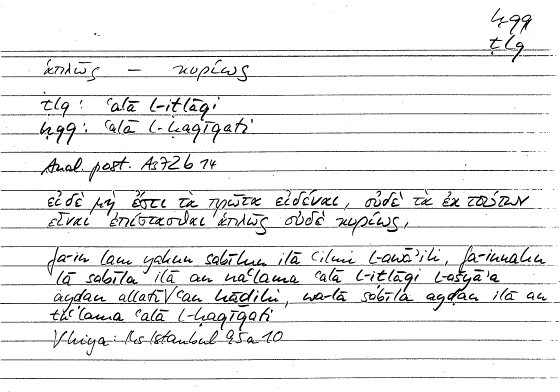 ḥqq
ṭlq
ἁπλῶς – κυρίως
ṭlq: ʿalā l-iṭlāqi
ḥqq: ʿalā l-ḥaqīqati
Anal. post. A3 72b 14
εἰ δὲ μὴ ἔστι τὰ πρῶτα εἰδέναι, οὐδὲ τὰ ἐκ τούτων
εἶναι ἐπίστασθαι ἁπλῶς οὐδὲ κυρίως,
fa-in lam yakun sabīlun ilā ʿilmi l-awāʾili, fa-innahu
lā sabīla ilā an naʿlama ʿalā l-iṭlāqi l-ašyāʾa
ayḍan allatī ʿan hāḏihi, wa-lā sabīla ayḍan ilā an
ʿalama ʿalā l-ḥaqīqati
Ms Istanbul 95a10